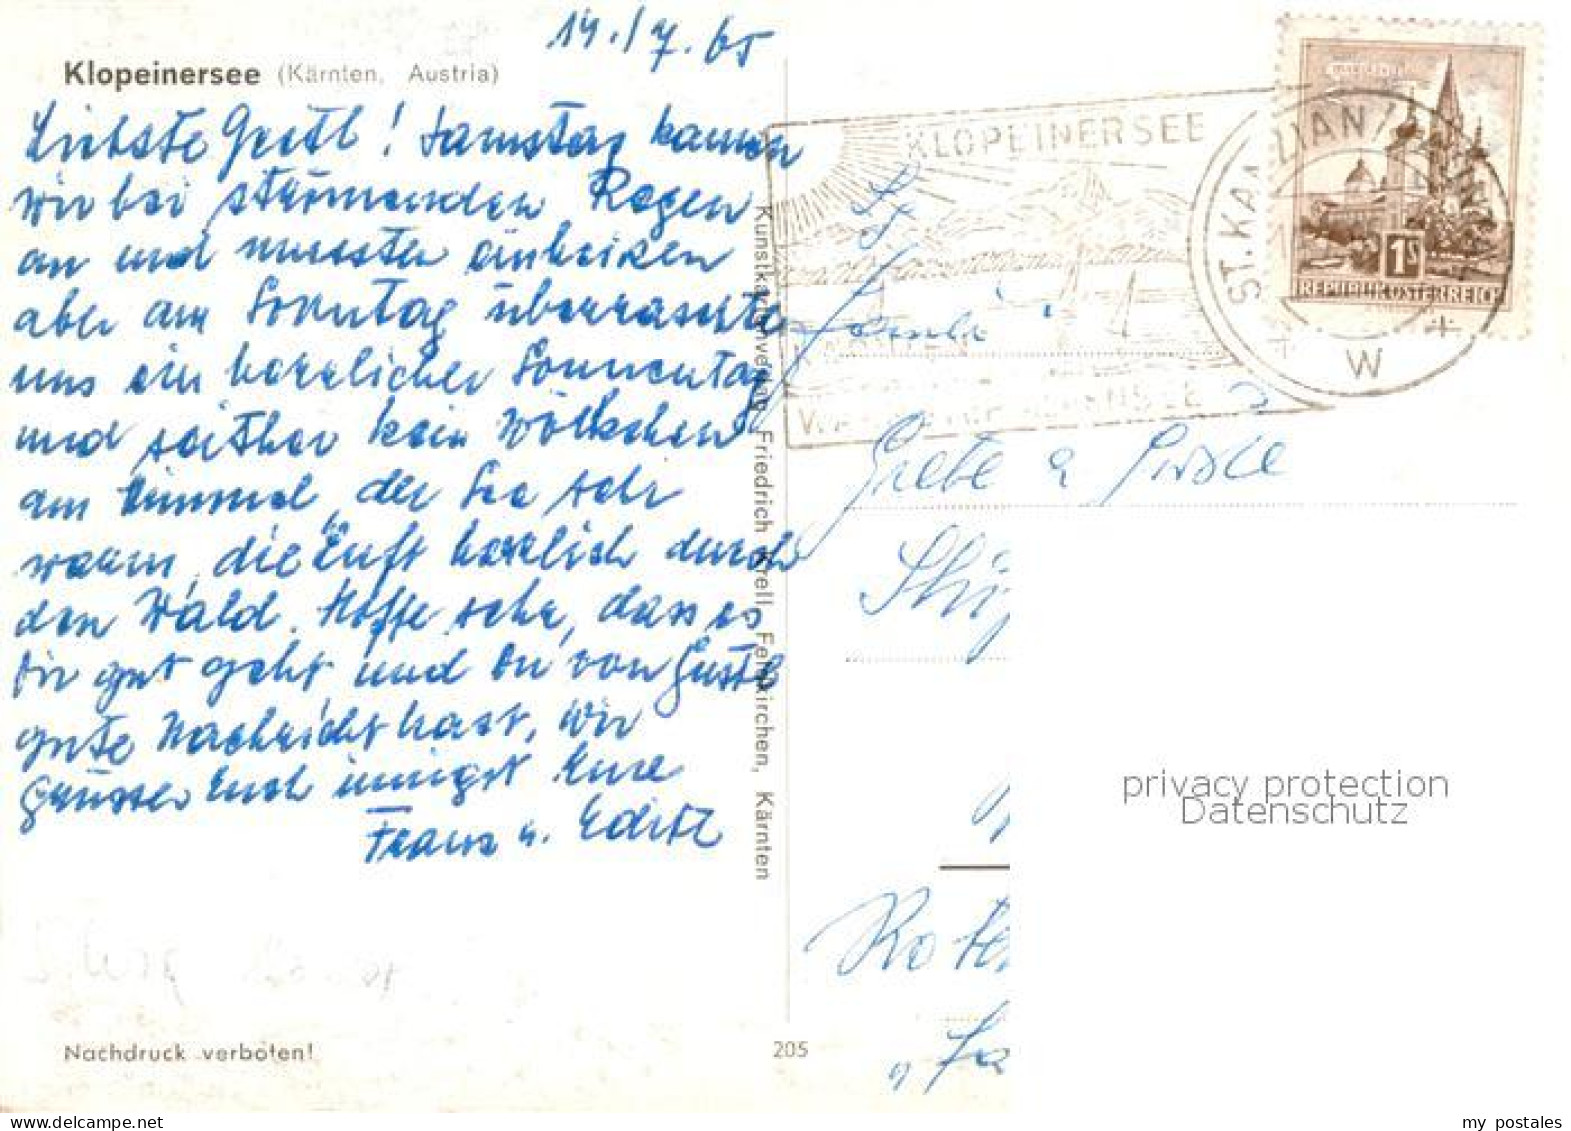 14./7. 65
Klopeinersee (Kärnten, Austria)
Liebste Gretl! Samstag kamen
wir bei stürmenden Regen
an und mussten einheizen
aber am Sonntag überraschte
uns ein herrlicher Sonnentag
und seither kein Wölkchen
am Himmel, der See sehr
warm, die Luft herrlich durch
den Wald. Hoffe sehr, dass es
Dir gut geht und Du von Gustl
gute Nachricht hast, wir
Grüssen Euch innigst Eure
Franz u. Edith
Nachdruck verboten!
205
Kunstkartenverlag Friedrich Krell, Feldkirchen, Kärnten
KLOPEINERSEE
W
1S
REPUBLIK OSTERREICH
Familie
Grete u
privacy protection
Datenschutz
www.delcampe.net
my_postales